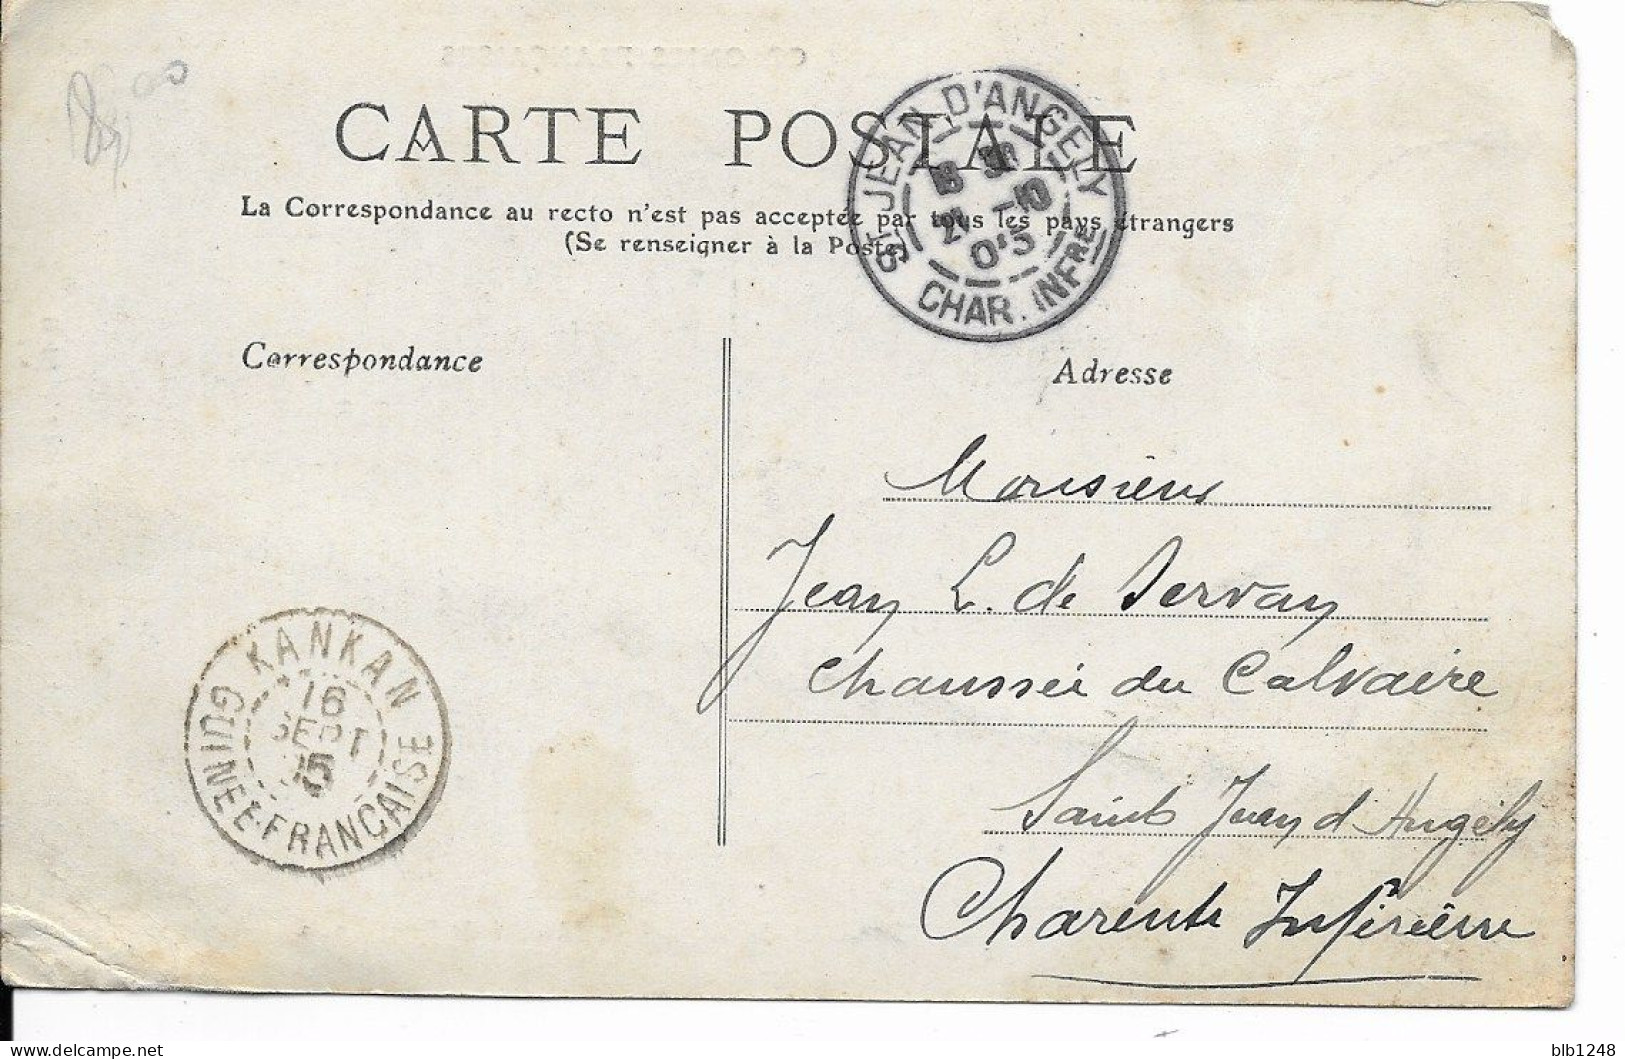 CARTE POSTALE
La Correspondance au recto n'est pas acceptée par tous les pays étrangers
(Se renseigner à la Poste)
ST JEAN D'ANGELY
21 -10
05
CHAR. INFRE
Correspondance
Adresse
Monsieur
Jean L. de Servan
Chaussée du Calvaire
Saint Jean d'Angély
Charente Inférieure
KANKAN
16
SEPT
05
GUINÉE-FRANÇAISE
blb1248